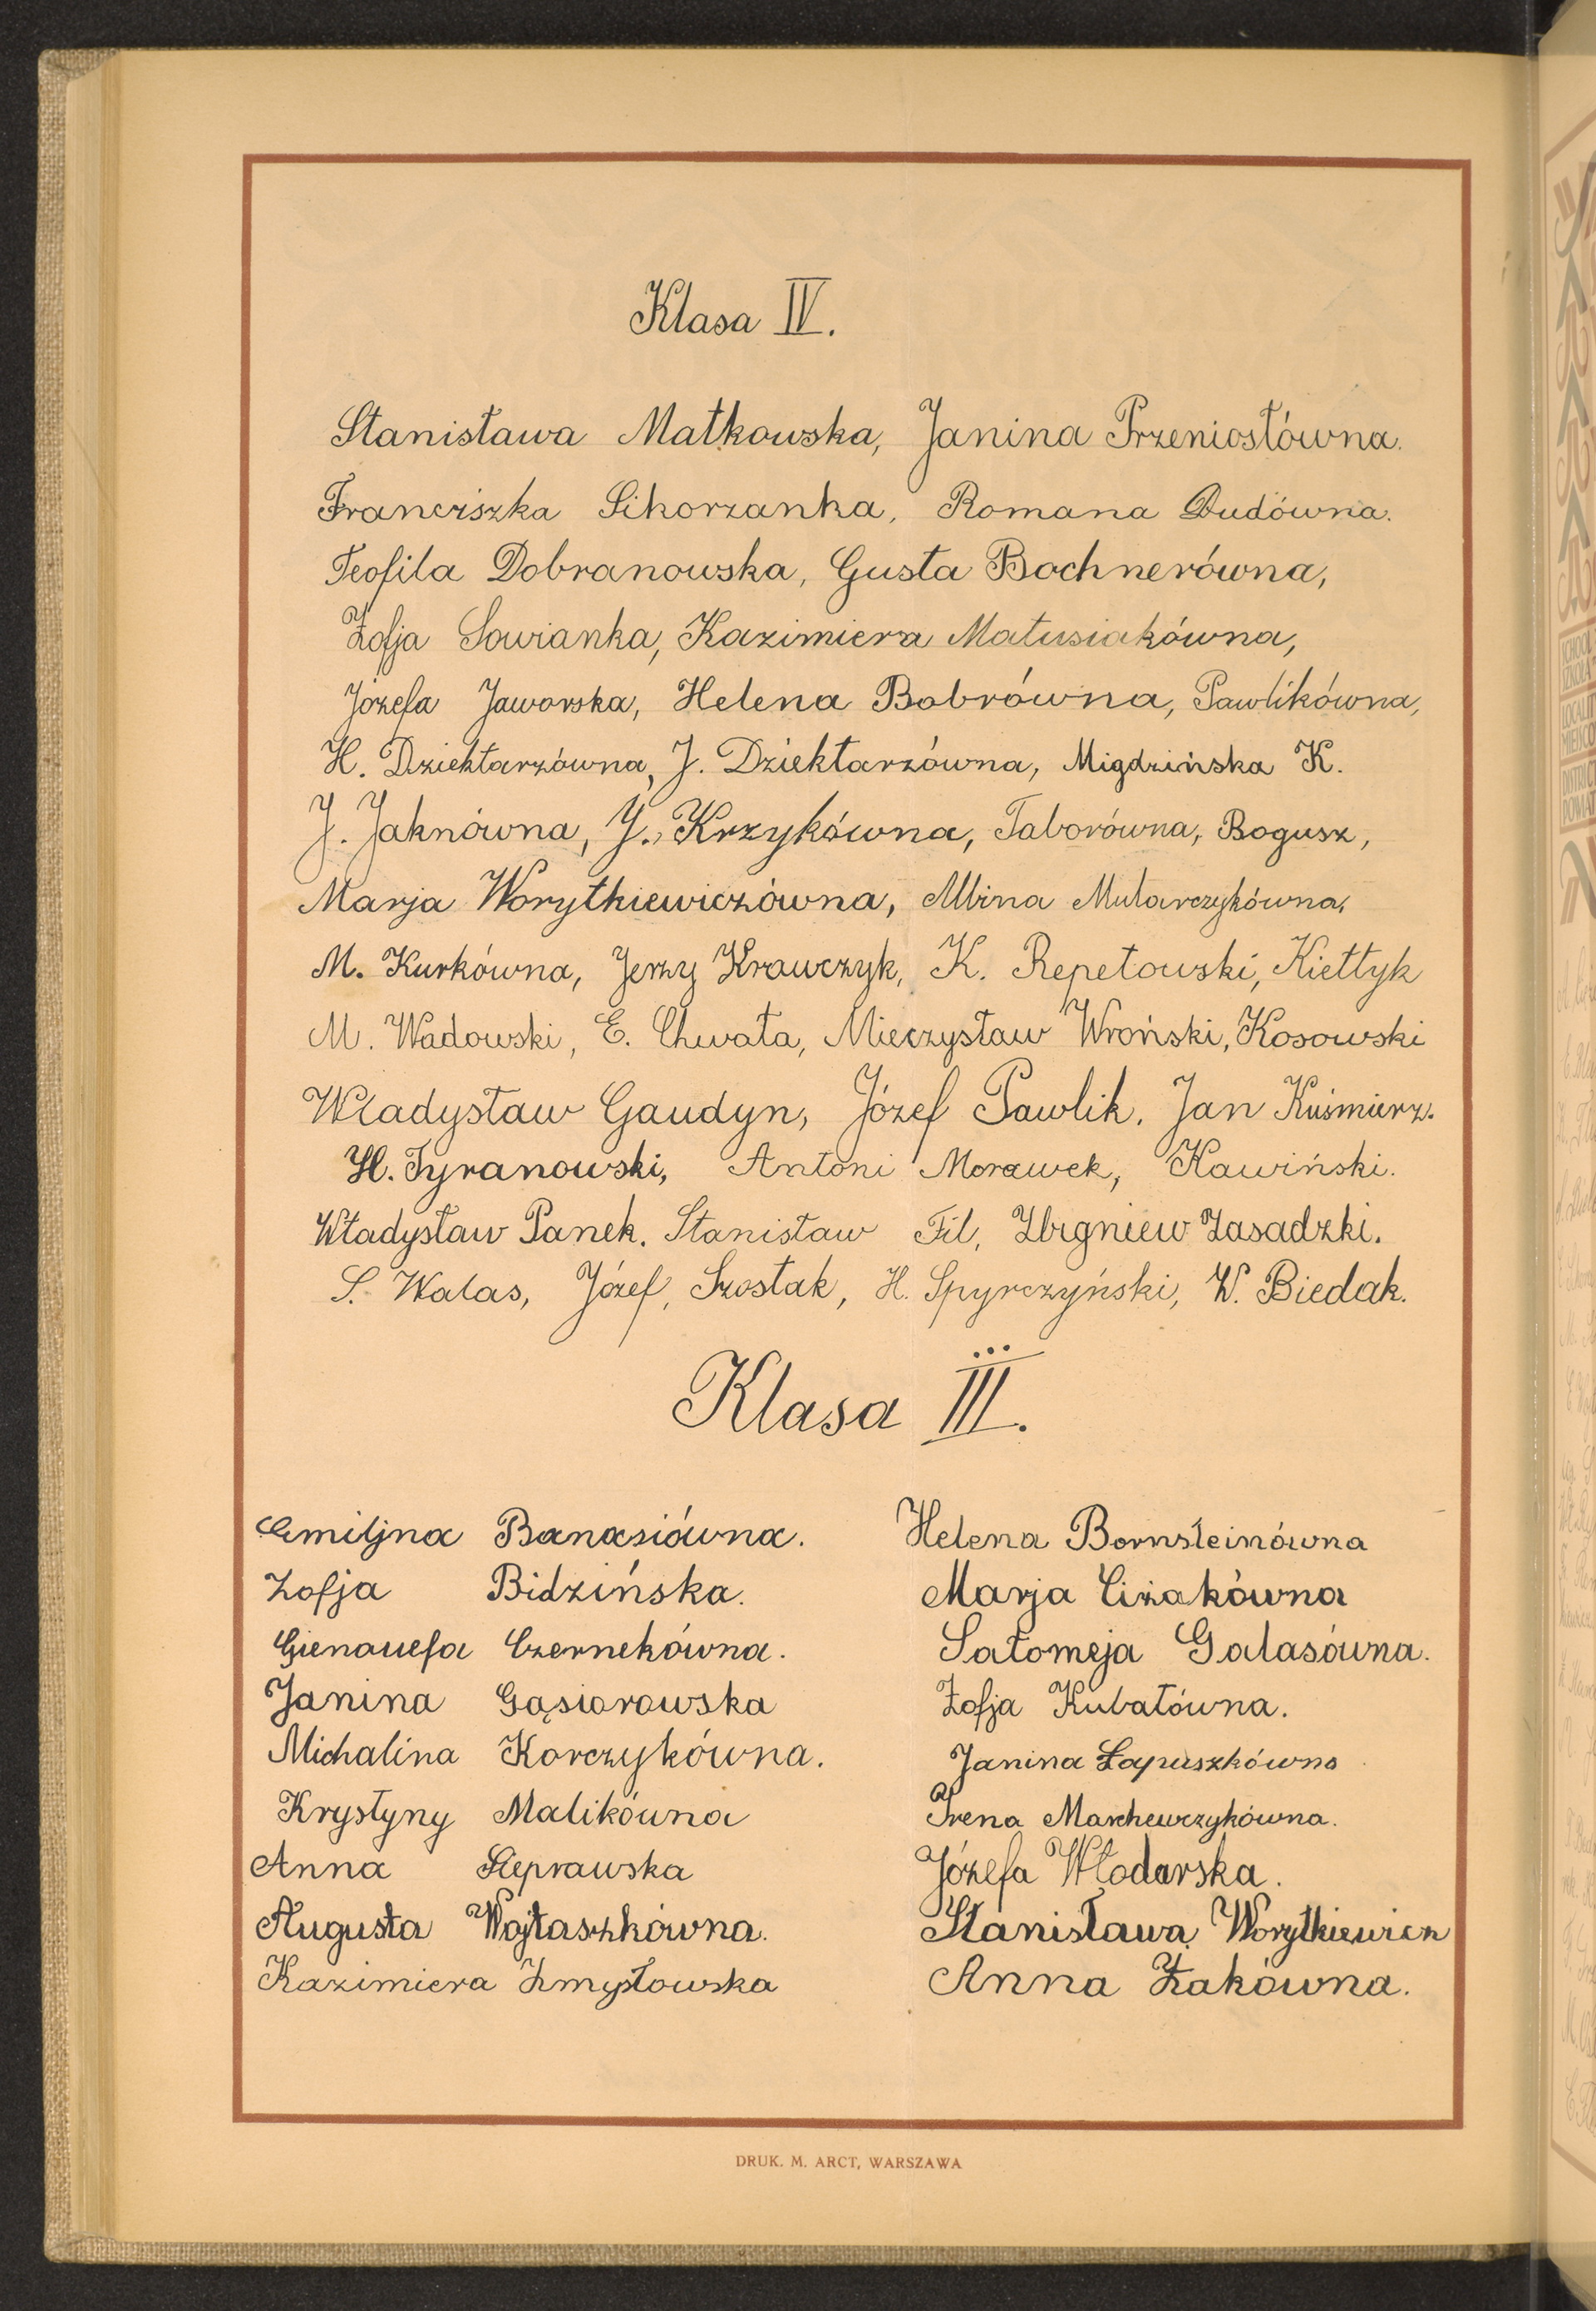 Klasa IV.
Stanisława Małkowska, Janina Przeniosłówna.
Franciszka Sikorzanka, Romana Dudówna.
Teofila Dobranowska, Gusta Bochnerówna,
Zofja Sowianka, Kazimiera Matusiakówna,
Józefa Jaworska, Helena Bobrówna, Pawlikówna,
H. Dziektarzówna, J. Dziektarzówna, Migdzińska K.
J. Jaknówna, J. Krzykówna, Taborówna, Bogusz,
Marja Worytkiewiczówna, Albina Mularczykówna,
M. Kurkówna, Jerzy Krawczyk, K. Repetowski, Kiełtyk
M. Wadowski, E. Chwała, Mieczysław Wroński, Kosowski
Władysław Gaudyn, Józef Pawlik. Jan Kuśmierz.
H. Tyranowski, Antoni Morawek, Kawiński.
Władysław Panek. Stanisław Fil, Zbigniew Zasadzki.
S. Walas, Józef, Szostak, H. Spyrczyński, W. Biedak.
Klasa III.
Emiljna Banasiówna. Helena Bornsteinówna
Zofja Bidzińska. Marja Ciżakówna
Gienauefa Czernekówna. Salomeja Galasówna.
Janina Gąsiorowska Zofja Kubałówna.
Michalina Korczykówna. Janina Łapuszkówna
Krystyny Malikówna Irena Marchewczykówna.
Anna Józefa Włodarska.
Augusta Wojtaszkówna. Stanisława Worytkiewicz
Kazimiera Zmysłowska Anna Żakówna.
DRUK. M. ARCT, WARSZAWA